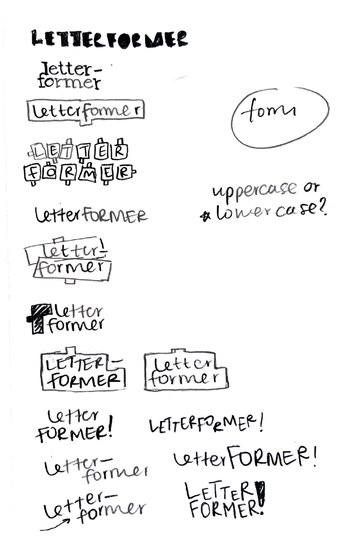 LETTERFORMER
letter-
former
letterformer
LETTER
FORMER
letterFORMER
letter!
former
letter
former
LETTER-
FORMER
letter
FORMER!
letter-
former
letter-
former
form
uppercase or
lowercase?
letter
former
LETTERFORMER!
letterFORMER!
LETTER
FORMER!